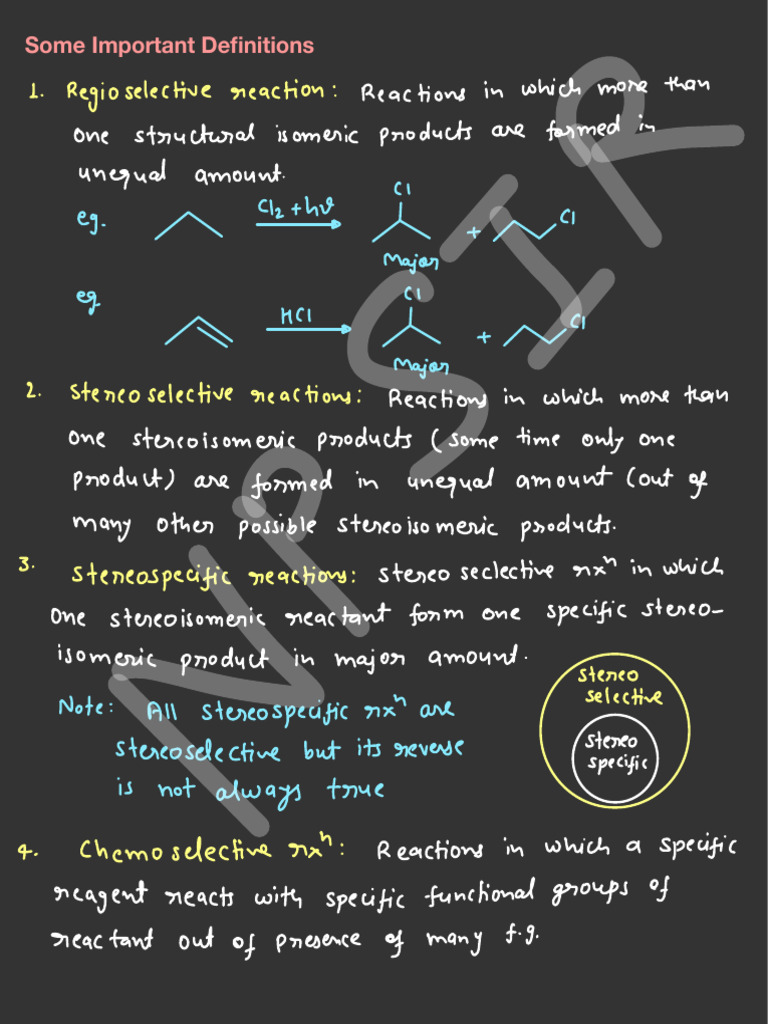 Some Important Definitions
1. Regioselective reaction: Reactions in which more than
one structural isomeric products are formed in
unequal amount.
eg. Cl2 + hν Cl + Cl
Major
eg HCl Cl + Cl
Major
2. Stereoselective reactions: Reactions in which more than
one stereoisomeric products (some time only one
product) are formed in unequal amount (out of
many other possible stereoisomeric products.
3. Stereospecific reactions: stereo seclective rxⁿ in which
one stereoisomeric reactant form one specific stereo-
isomeric product in major amount.
Note: All stereospecific rxⁿ are
stereoselective but its reverse
is not always true
stereo
selective
stereo
specific
4. Chemoselective rxⁿ: Reactions in which a specific
reagent reacts with specific functional groups of
reactant out of presence of many f.g.
NP SIR